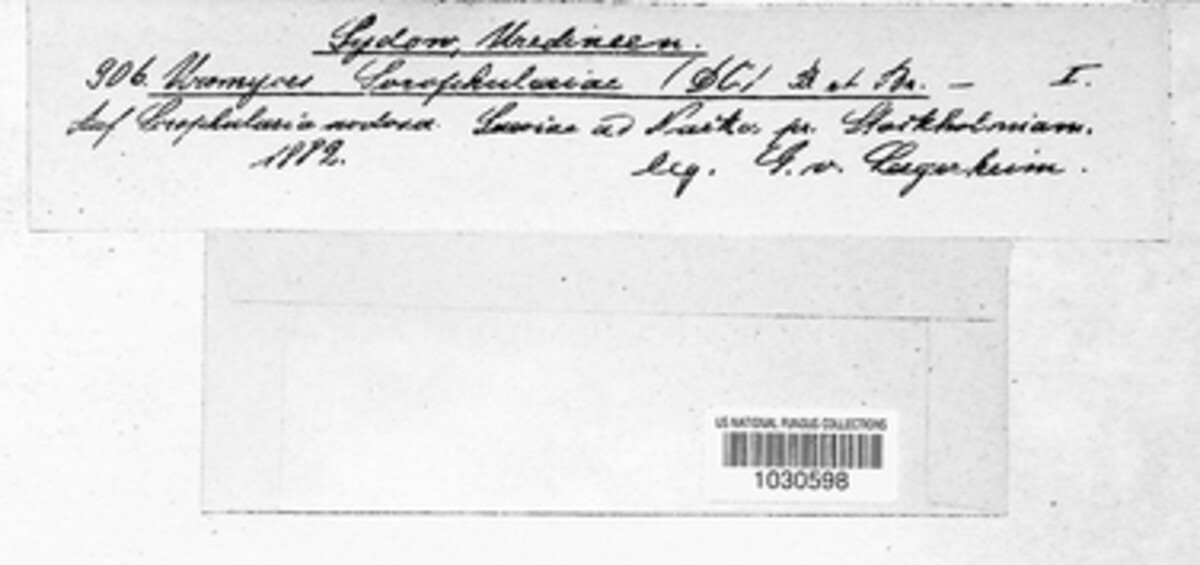 Sydow, Uredineen.
906. Uromyces Scrophulariae (DC) B et Br. — I.
Auf Scrophularia nodosa. Sueciae ad Nacka pr. Stockholmiam.
1882. leg. G. v. Lagerheim.
US NATIONAL FUNGUS COLLECTIONS
1030598